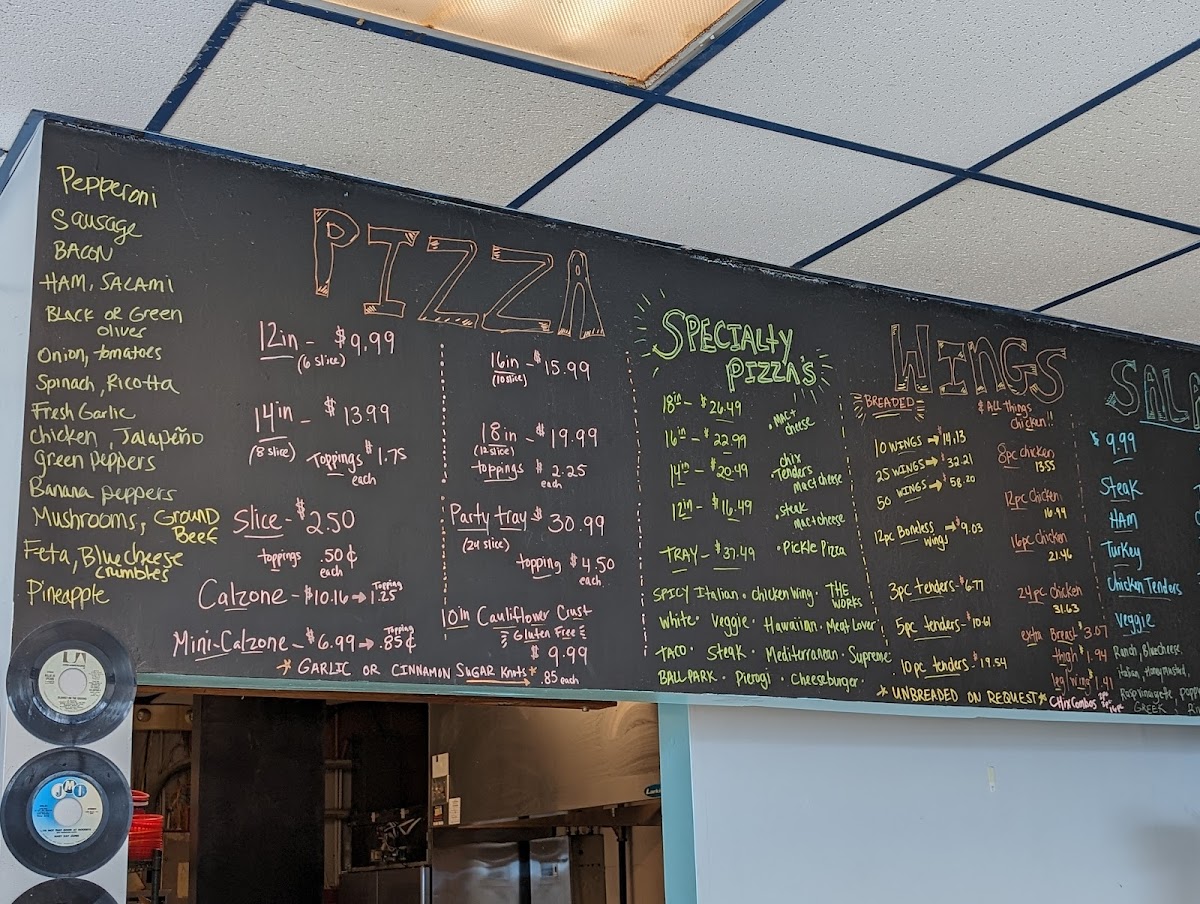 Pepperoni
Sausage
BACON
HAM, SALAMI
BLACK OR Green
olives
Onion, tomatoes
Spinach, Ricotta
Fresh Garlic
chicken, Jalapeño
Green peppers
Banana peppers
Mushrooms, Ground
Beef
Feta, Bluecheese
crumbles
Pineapple
PIZZA
12in - $9.99
(6 slice)
14in - $13.99
(8 slice)
Toppings $1.75
each
Slice - $2.50
toppings .50¢
each
Calzone - $10.16 → Topping
1.25
Mini-Calzone - $6.99 → Topping
.85¢
16in - $15.99
(10 slice)
18in - $19.99
(12 slice)
toppings $2.25
each
Party tray $30.99
(24 slice)
topping $4.50
each
10in Cauliflower Crust
Gluten Free
$9.99
* GARLIC OR CINNAMON SUGAR Knots * .85 each
SPECIALTY
PIZZA'S
18in - $26.49
16in - $22.99
14in - $20.49
12in - $16.49
TRAY - $37.49
• MAC +
cheese
• chix
Tenders
mac + cheese
• steak
mac + cheese
• Pickle Pizza
SPICY Italian • chicken wing • THE
WORKS
White • Veggie • Hawaiian • Meat Lover
TACO • Steak • Mediterranean • Supreme
BALLPARK • Pierogi • Cheeseburger
WINGS
BREADED
10 WINGS → $14.13
25 WINGS → $32.21
50 WINGS → $58.20
12pc Boneless → $9.03
wings
3pc tenders - $6.77
5pc tenders - $10.61
10pc tenders - $19.54
& ALL Things
chicken!!
8pc chicken
13.55
12pc chicken
16.94
16pc chicken
21.46
24pc chicken
31.63
extra Breast $3.07
thigh $1.94
leg wing $1.41
* UNBREADED ON REQUEST *
Chix Combos
SALA
$9.99
Steak
HAM
Turkey
Chicken Tenders
Veggie
Ranch, Bluecheese,
Italian, Honey mustard,
Raspvinaigrette
GREEK
JMI